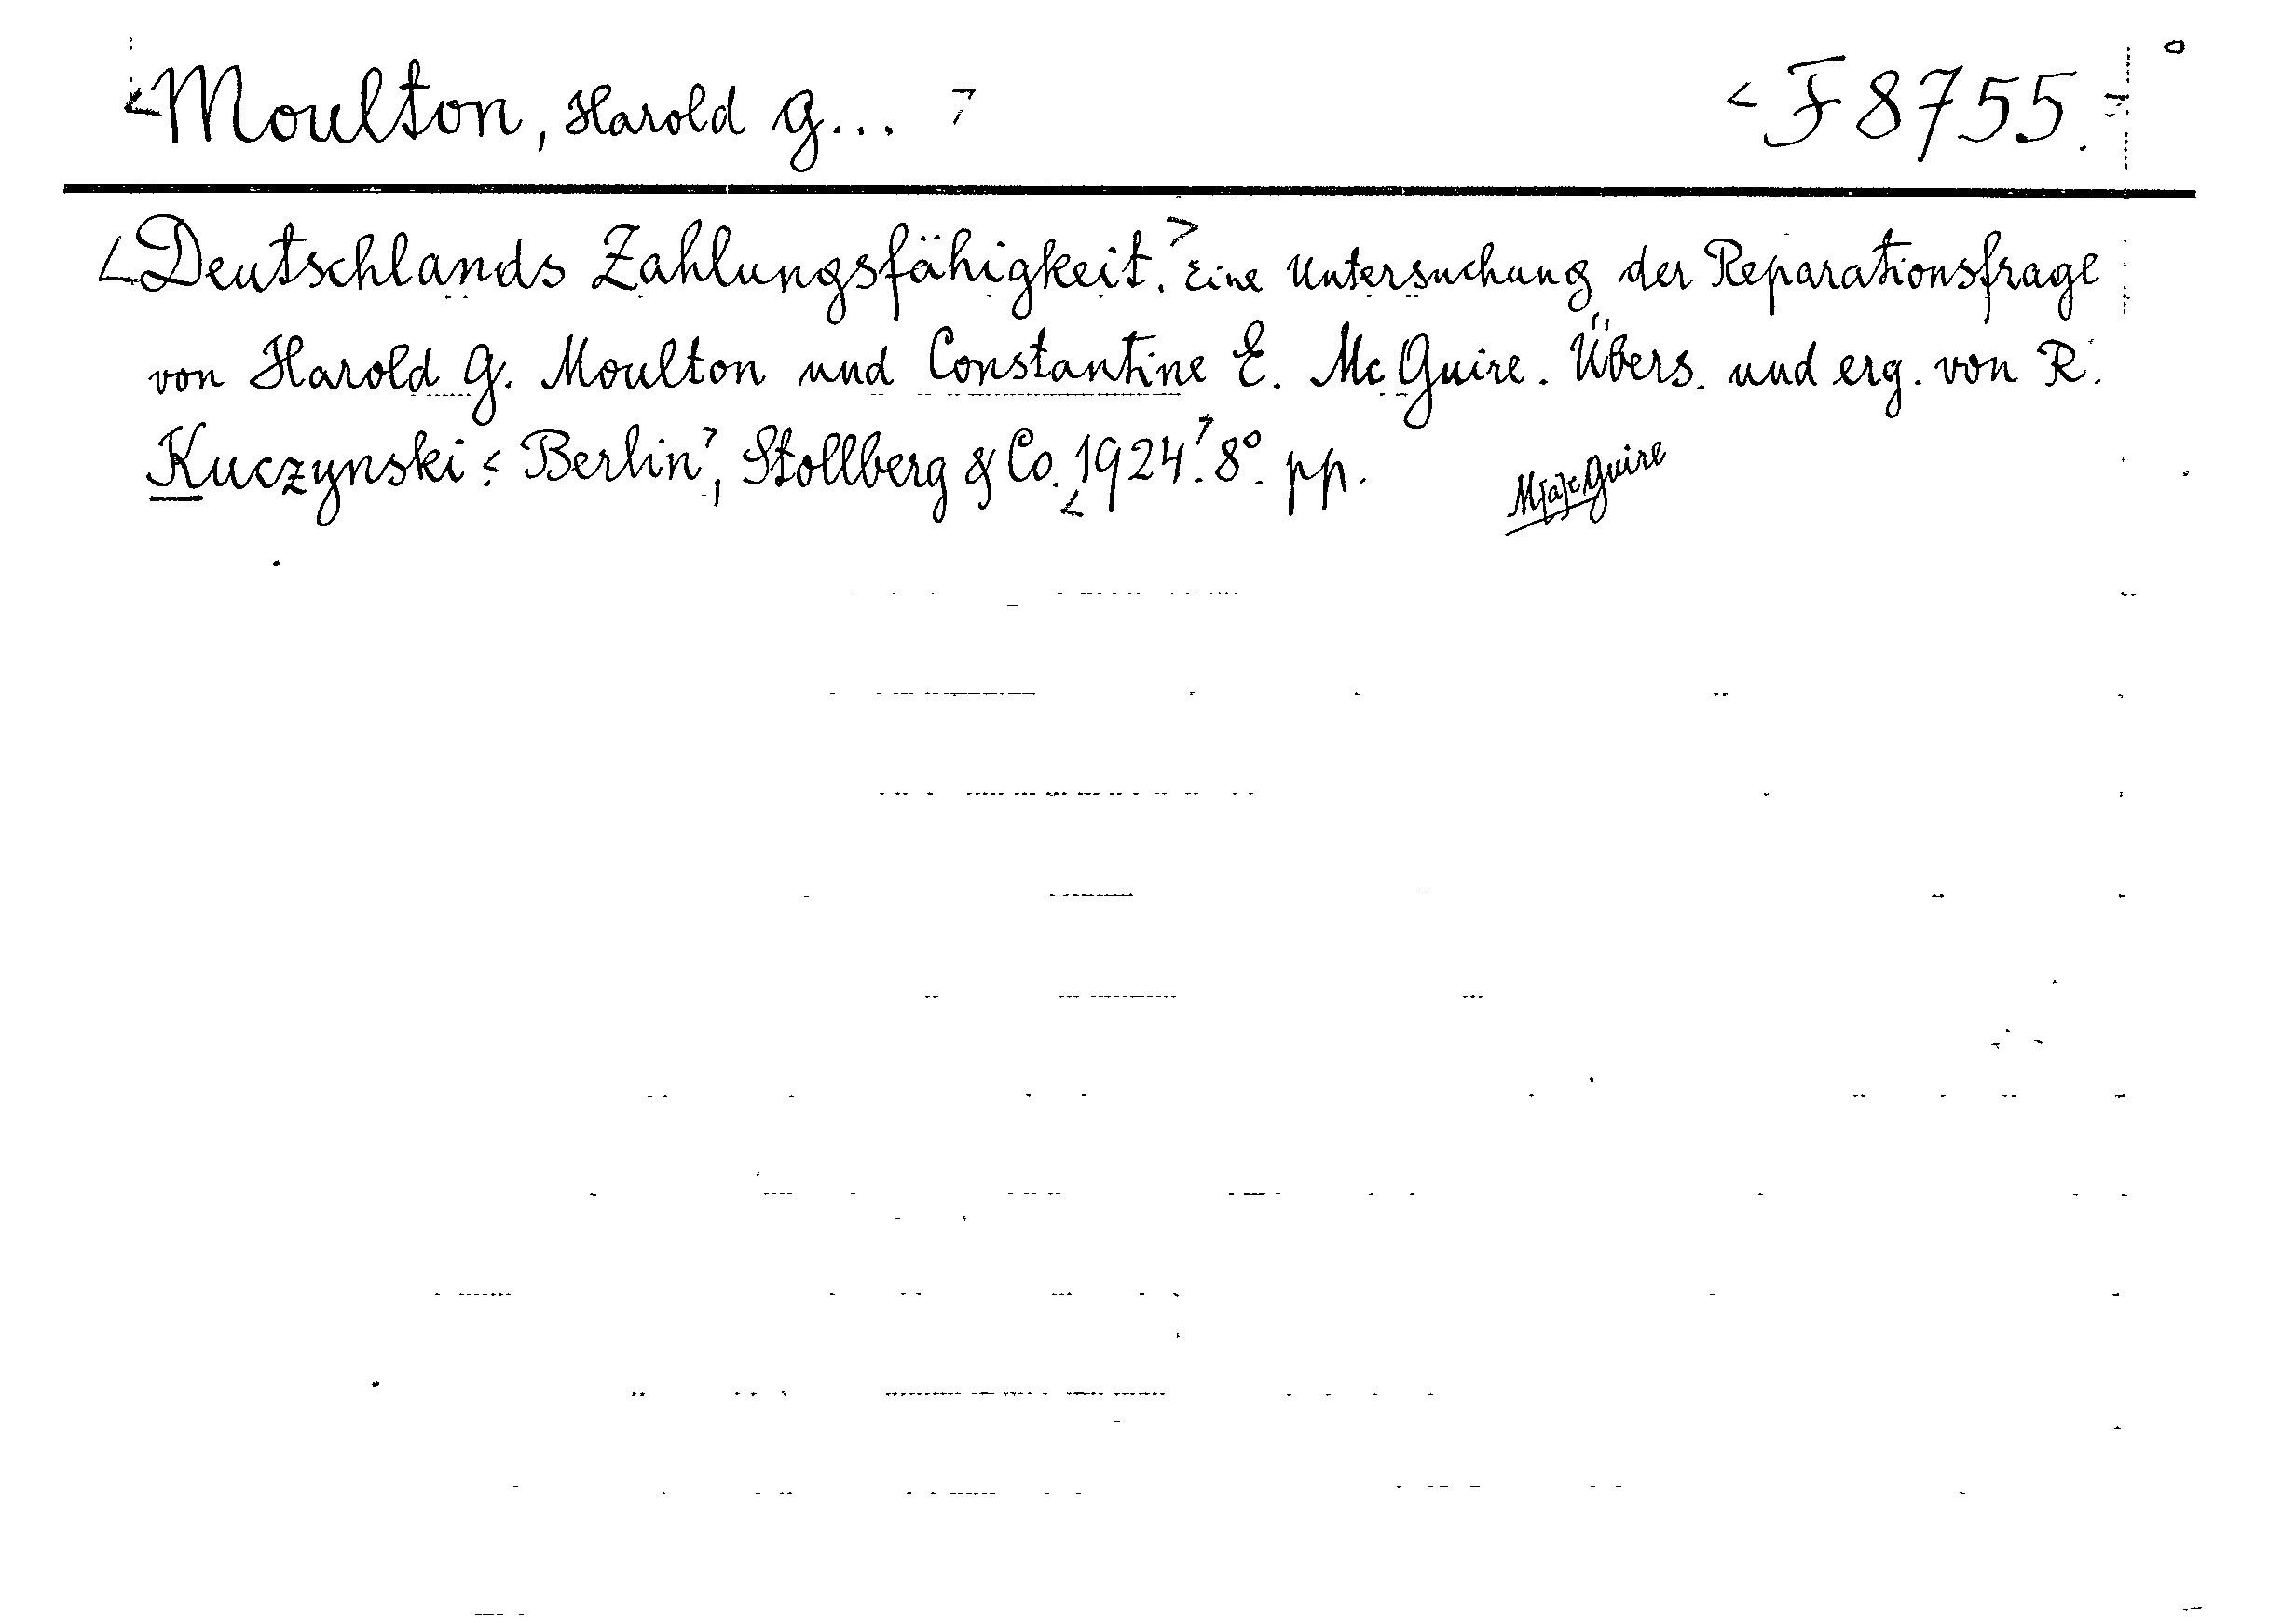 <Moulton, Harold G...>
<F 8755.>
<Deutschlands Zahlungsfähigkeit.> Eine Untersuchung der Reparationsfrage
von Harold G. Moulton und Constantine E. Mc Guire. Übers. und erg. von R.
Kuczynski. <Berlin>, Stollberg & Co. <1924.> 8°. pp.
M[a]c Guire